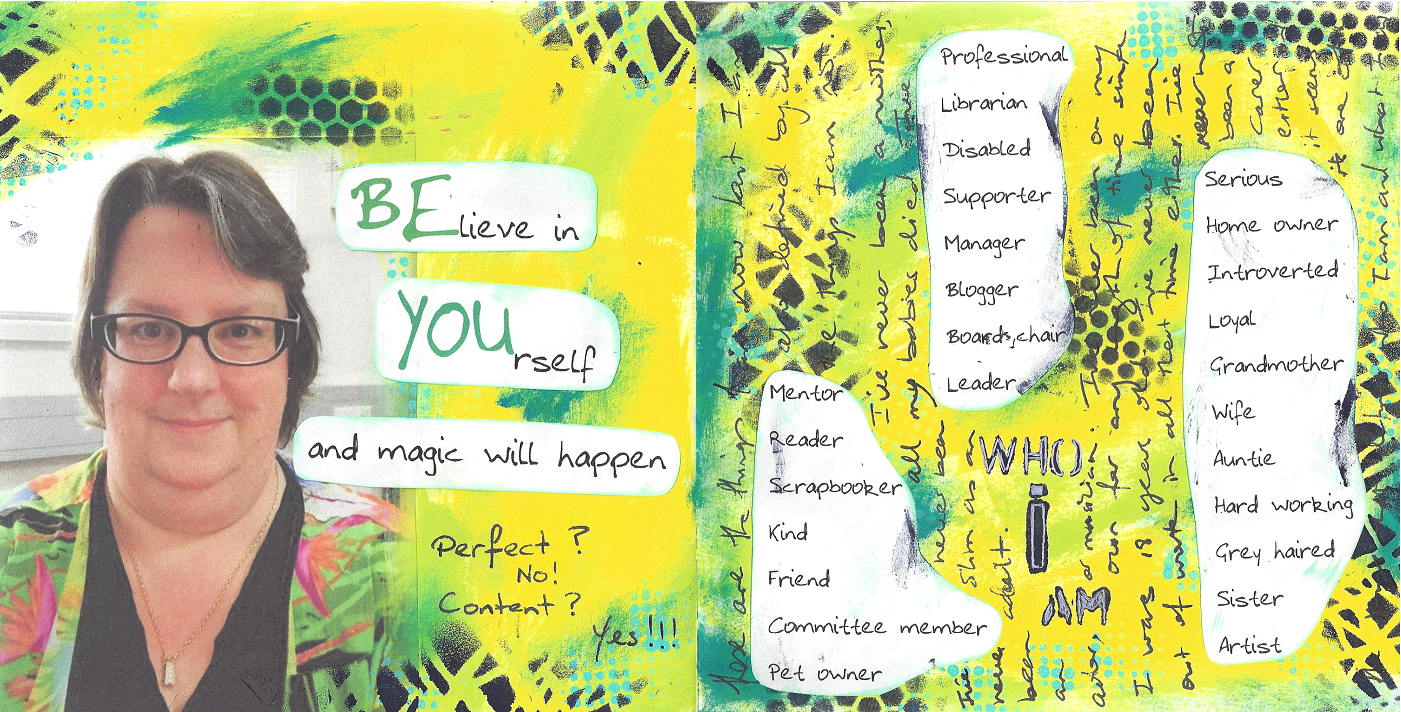 BElieve in
YOUrself
and magic will happen
Perfect?
No!
Content?
Yes!!!
are the things I know that I am
also defined by all
the things I am not.
I've never been a mother,
all my babies died. I've
never been
slim as an
adult.
I've
never
been
an
actor, or musician. I've never been on my
own for any length of time since
I was 18 years old. I've never been
out of work in all that time either. I've
been a
Carer
either
it seems
I am and what I
Mentor
Reader
Scrapbooker
Kind
Friend
Committee member
Pet owner
Professional
Librarian
Disabled
Supporter
Manager
Blogger
Boards, chair
Leader
WHO
I
AM
Serious
Home owner
Introverted
Loyal
Grandmother
Wife
Auntie
Hard working
Grey haired
Sister
Artist